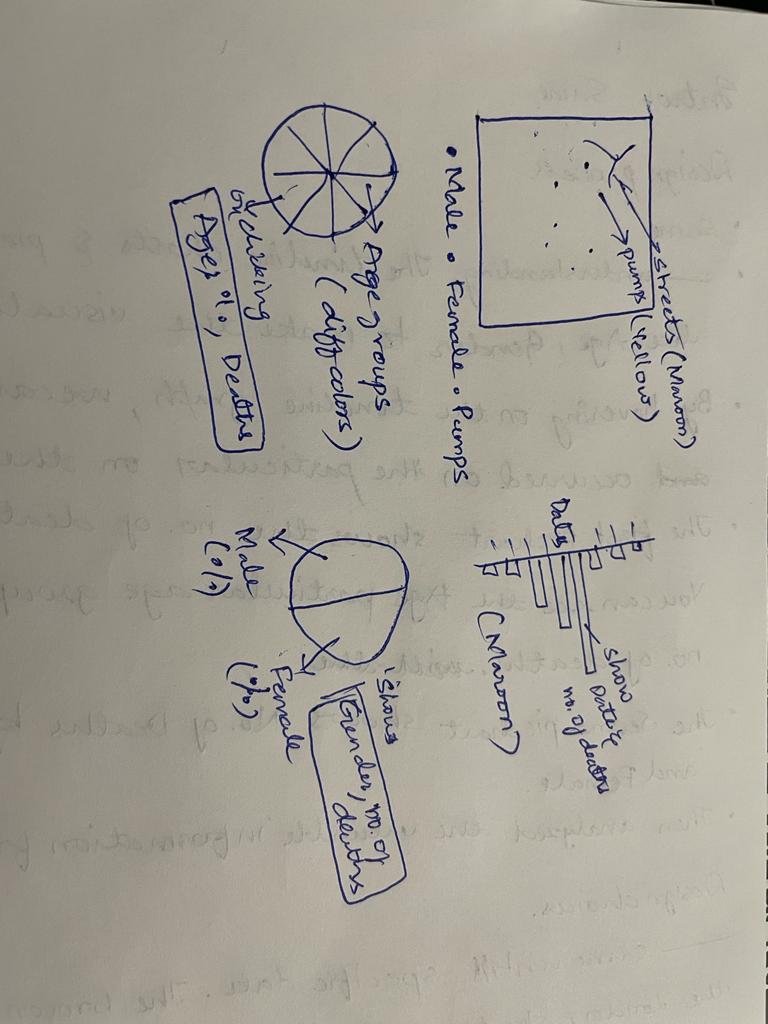 streets (Maroon)
pumps (Yellow)
• Male • Female • Pumps
show
Date &
no. of deaths
Dates
(Maroon)
Age groups
(diff colors)
on clicking
Age, %, Deaths
Shows
Gender, no. of
deaths
Male
(%)
Female
(%)